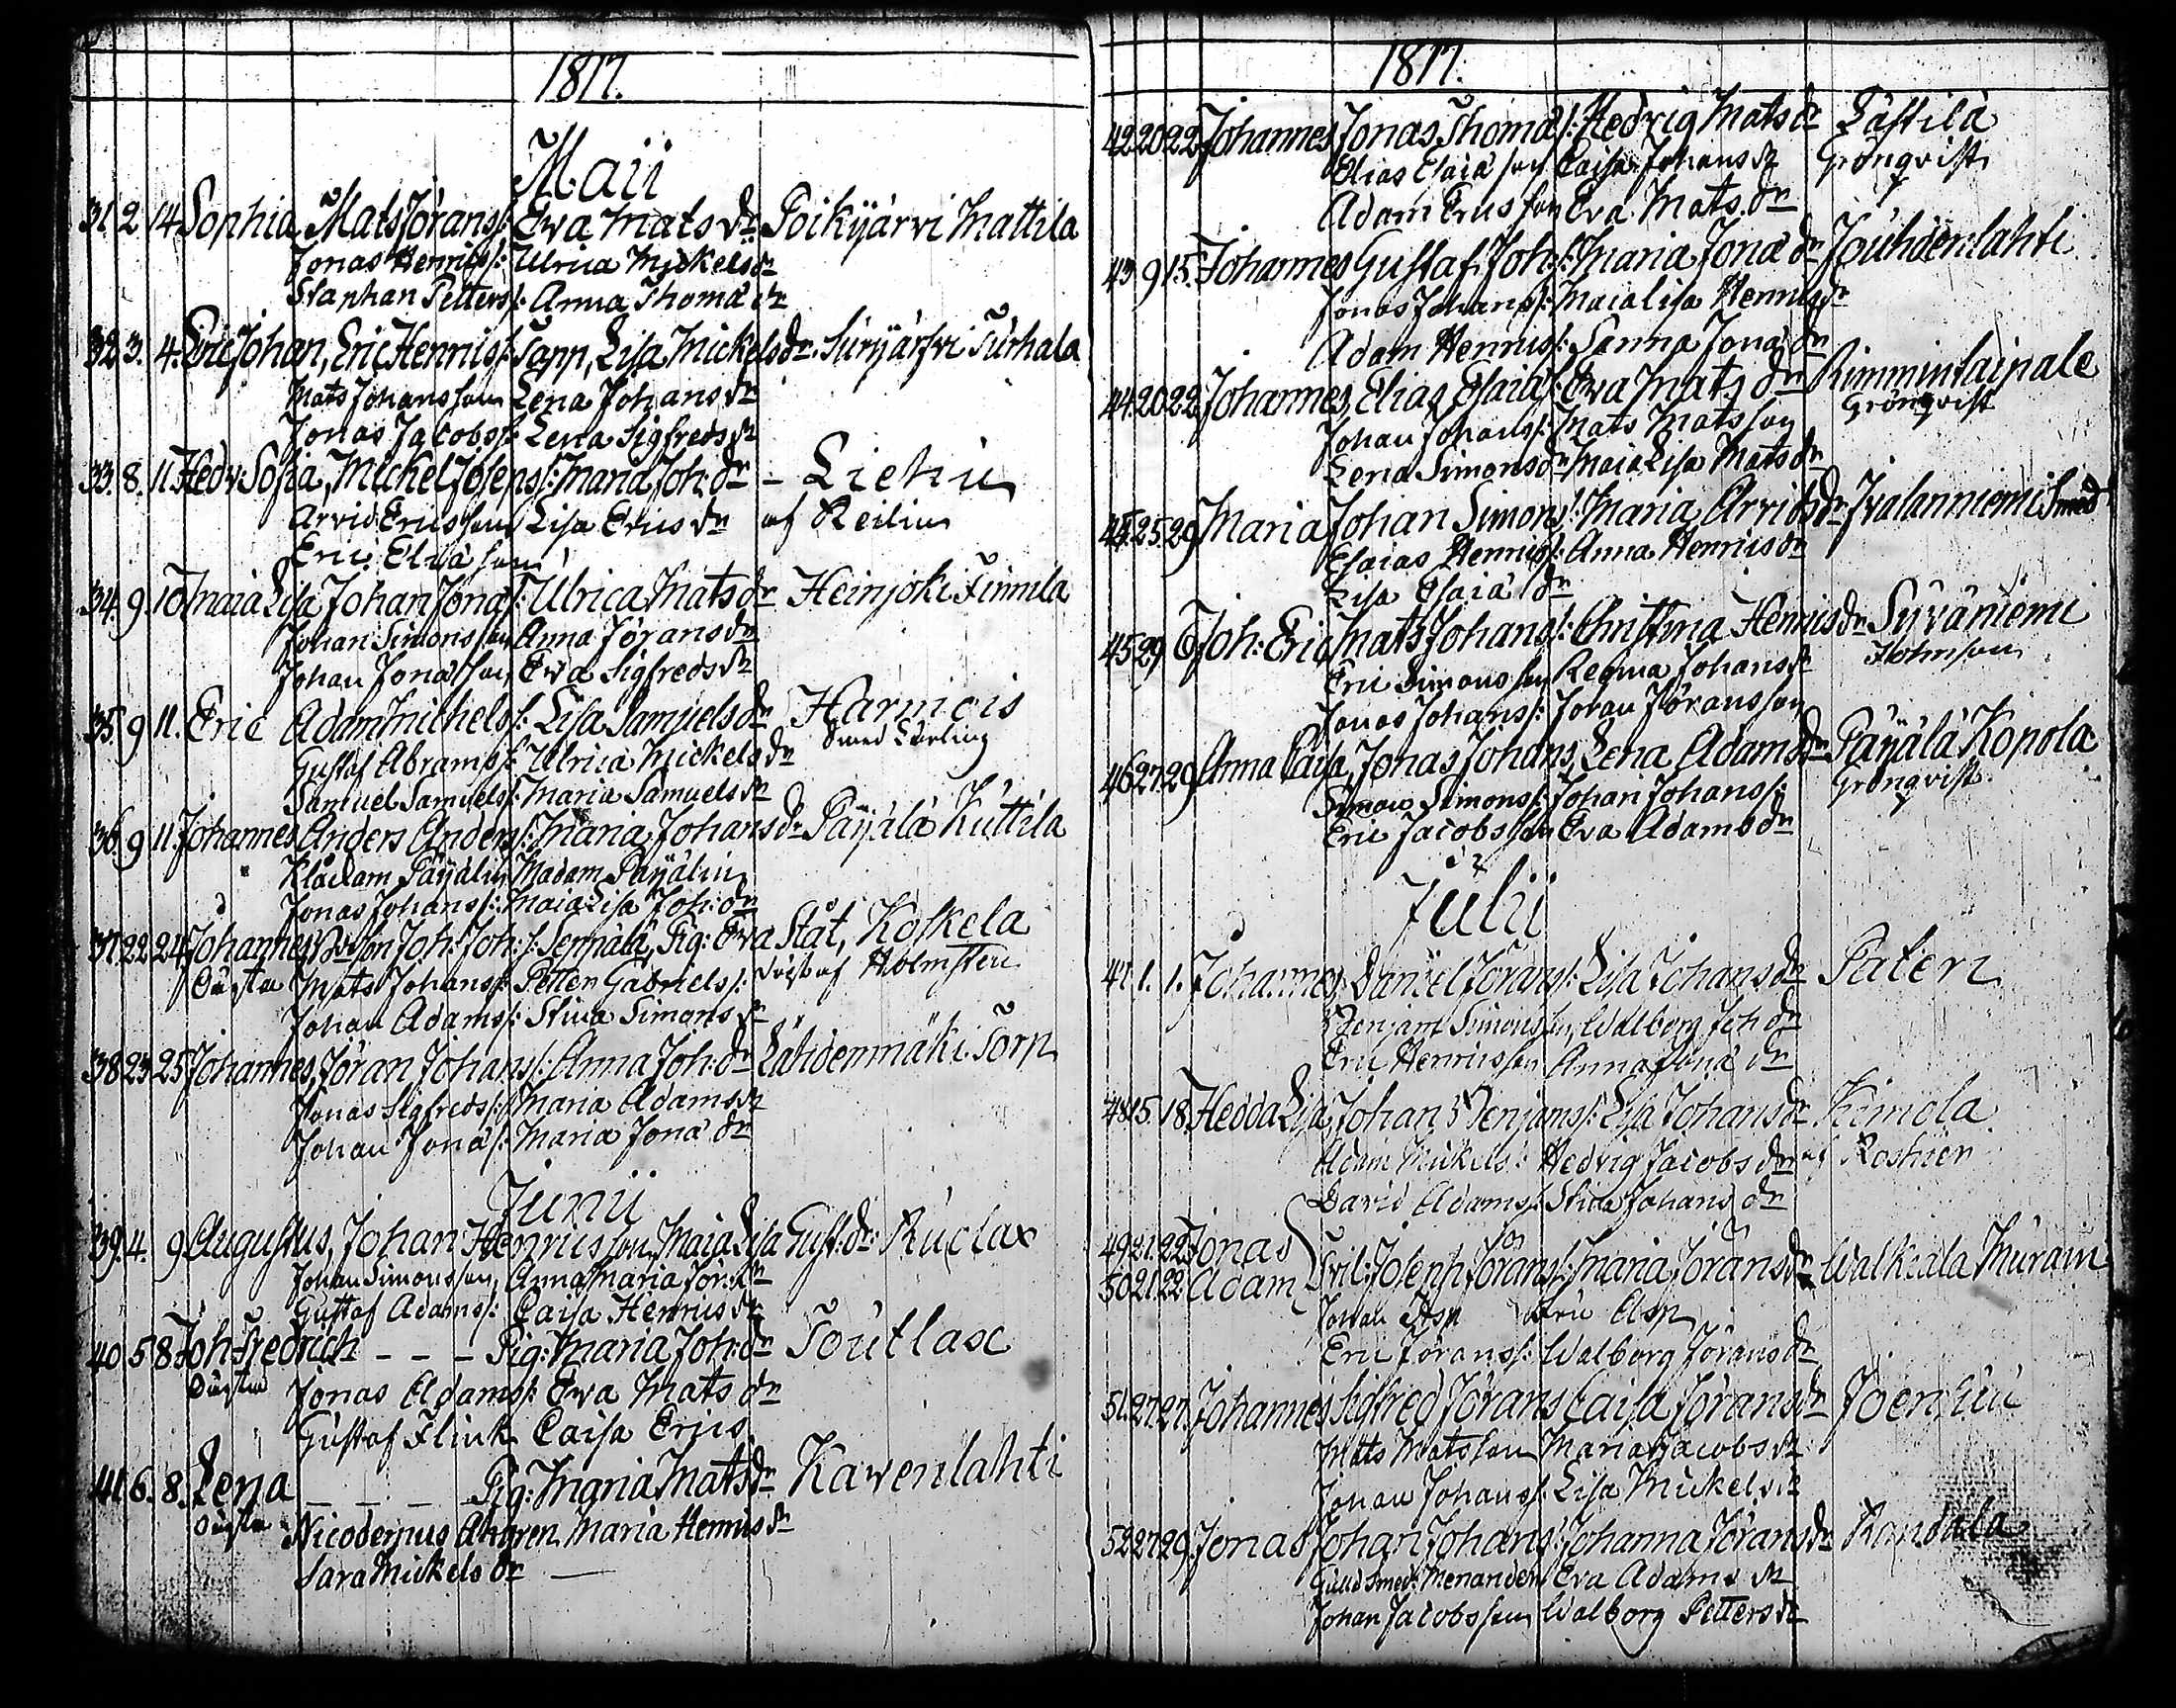 1817.
Maii
31. 2. 14. Sophia, Mats Jörans/: Ewa Mats dr Poikijärvi Mattila
Jonas Henrics/: Ulrica Mickels dr
Staphan Petters/: Anna Thomæ dr
32. 3. 4. Eric Johan, Eric Henrics/: Tapp, Lisa Mickels dr. Turhala
Mats Johansson Lena Johans dr
Jonas Jacobs/: Lena Sigfreds dr
33. 8. 11. Hedv: Sofia, Mickel Josephs/: Maria Joh: dr - Liehu
Arvid Ericsson Lisa Erics dr af
Eric Eliæ son
34. 9. 10 Maia Lisa Johan Jonæ/: Ulrica Mats dr Heinjoki Finnila
Johan Simonsson Anna Jörans dr
Johan Jonæson Ewa Sigfreds dr
35. 9 11. Eric Adam Michels/: Lisa Samuels dr Harniois
Gustaf Abrams/: Ulrica Mickels dr Smed
Samuel Samuels/: Maria Samuels dr
36. 9 11. Johannes Anders Anders/: Maria Johans dr Päijälä Kuttila
Madam Päijälin
Jonas Johans/: Maia Lisa Joh: dr
37. 22. 24 Johannes Joh: Joh:/: Sennälä, Pig: Eva Ståt, Kolkela
Oägta Mats Johans/: Petter Gabriels/: Holmsten
Johan Adams/: Stina Simons dr
38 23 25 Johannes, Jöran Johans/: Anna Joh: dr Lähdenmäki Torp
Jonas Sigfreds/: Maria Adams dr
Johan Jonæ/: Maria Jonæ dr
Junii
39. 4. 9 Augustus, Johan Henricsson, Maja Lisa Gust: dr: Ruclax
Johan Simonsson, Anna Maria Jör: dr
Gustaf Adams/: Caisa Henrics dr
40 5 8 Joh Fredrich - - - Pig: Maria Joh: dr Toutlax
Oägta Jonas Adams/: Ewa Mats dr
Gustaf Flink Caisa Erics
41. 6. 8. Lena - - - Pig: Maria Mats dr Kavenlahti
Oägta Nicodemus Ahgren Maria Henrics dr
Sara Mickels dr
1817.
42 20 22 Johannes Jonas Thomæ/: Hedvig Mats dr Lästilä
Elias Esaiæ son Caisa Johans dr Grönqvist
Adam Ericsson Eva Mats dr
43 9 15. Johannes Gustaf Joh:/: Maria Jonæ dr Jouhdenlahti
Jonas Johans/: Maia Lisa Henrics dr
Adam Henrics/: Sanna Jonæ dr
44. 20 22 Johannes, Elias Esaiæ/: Ewa Mats dr Rimminlaipale
Johan Johans/: Mats Matsson Grönqvist
Lena Simons dr Maia Lisa Mats dr
45. 25. 29 Maria Johan Simons/: Maria Arvids dr Jvalanniemi Smed
Esaias Henrics/: Anna Henrics dr
Lisa Esaiæ dr
45 29 6 Joh: Eric Mats Johans/: Christina Henrics dr Syväniemi
Eric Simonsson Regina Johans dr
Jonas Johans/: Johan Jöransson
46 27. 29 Anna Caisa, Jonas Johans, Lena Adams dr Päijälä Kopola
Simon Simons/: Johan Johans/: Grönqvist
Eric Jacobsson Eva Adams dr
Julii
47. 1. 1. Johannes, Daniel Jörans/: Lisa Johans dr Pateri
Benjam Simonsson, Walborg Joh dr
Eric Henricsson Anna Jonæ dr
48. 15. 18. Hedda Lisa, Johan Benjams/: Lisa Johans dr Kimola
Adam Mickels/: Hedvig Jacobs dr af Roshier
David Adams/: Stina Johans dr
49. 21. 22 Jonas
50 21 22 Adam Joseph Jörans/: Maria Jörans dr Walkiala Muram
Johan Eric Asp
Eric Jörans/: Walborg Jörans dr
51. 27. 27. Johannes Sigfred Jörans Caisa Jörans dr Joensuu
Mats Matsson Maria Jacobs dr
Johan Johans/: Lisa Mickels dr
52 27 29. Jonas Johan Johans/: Johanna Jörans dr Randala
Gulldsmed: Menander Eva Adams dr
Johan Jacobsson Walborg Petters dr